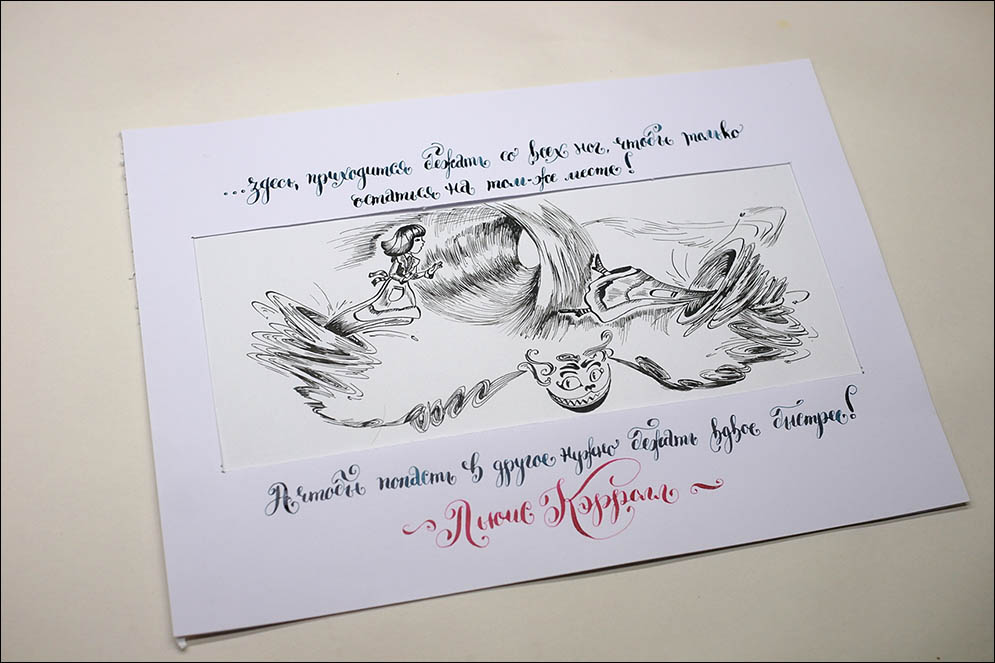 ...здесь, приходится бежать со всех ног, чтобы только
остаться на том-же месте!
А чтобы попасть в другое нужно бежать вдвое быстрее!
Льюис Кэрролл